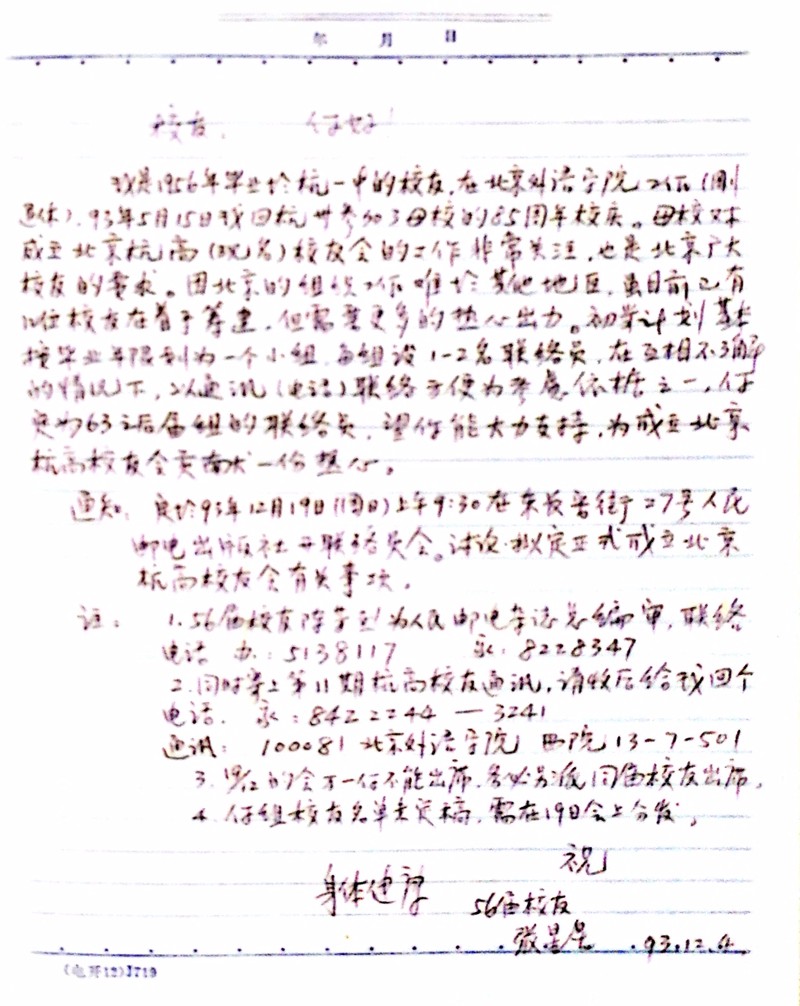 年 月 日
校友, 你好!
我是1956年毕业於杭一中的校友,在北京外语学院工作(刚
退休).93年5月15日我回杭州参加了母校的85周年校庆。母校对
成立北京杭高(现名)校友会的工作非常关注,也是北京广大
校友的要求。因北京的组织工作难於其他地区,虽目前已有
位校友在着手筹建,但需要更多的热心出力。初步计划基本
按毕业年限划为一个小组,每组设1-2名联络员,在互相不了解
的情况下,以通讯(电话)联络方便为考虑依据之一,你
定为63之后届组的联络员,望你能大力支持,为成立北京
杭高校友会贡献一份热心。
通知: 定於93年12月19日(周日)上午9:30在东长安街27号人民
邮电出版社开联络员会。讨论、拟定正式成立北京
杭高校友会有关事项.
注: 1.56届校友陈芳烈为人民邮电杂志总编审,联络
电话 办:5138117 家:8228347
2.同时寄上第11期杭高校友通讯,请收后给我回个
电话. 家:8422244—3241
通讯: 100081 北京外语学院 西院13-7-501
3. 19/12的会万一你不能出席,务必另派同届校友出席.
4. 你组校友名单未定稿,需在19日会上分发.
祝
身体健康
56届校友
张 93.12.4.
(电开12)J719